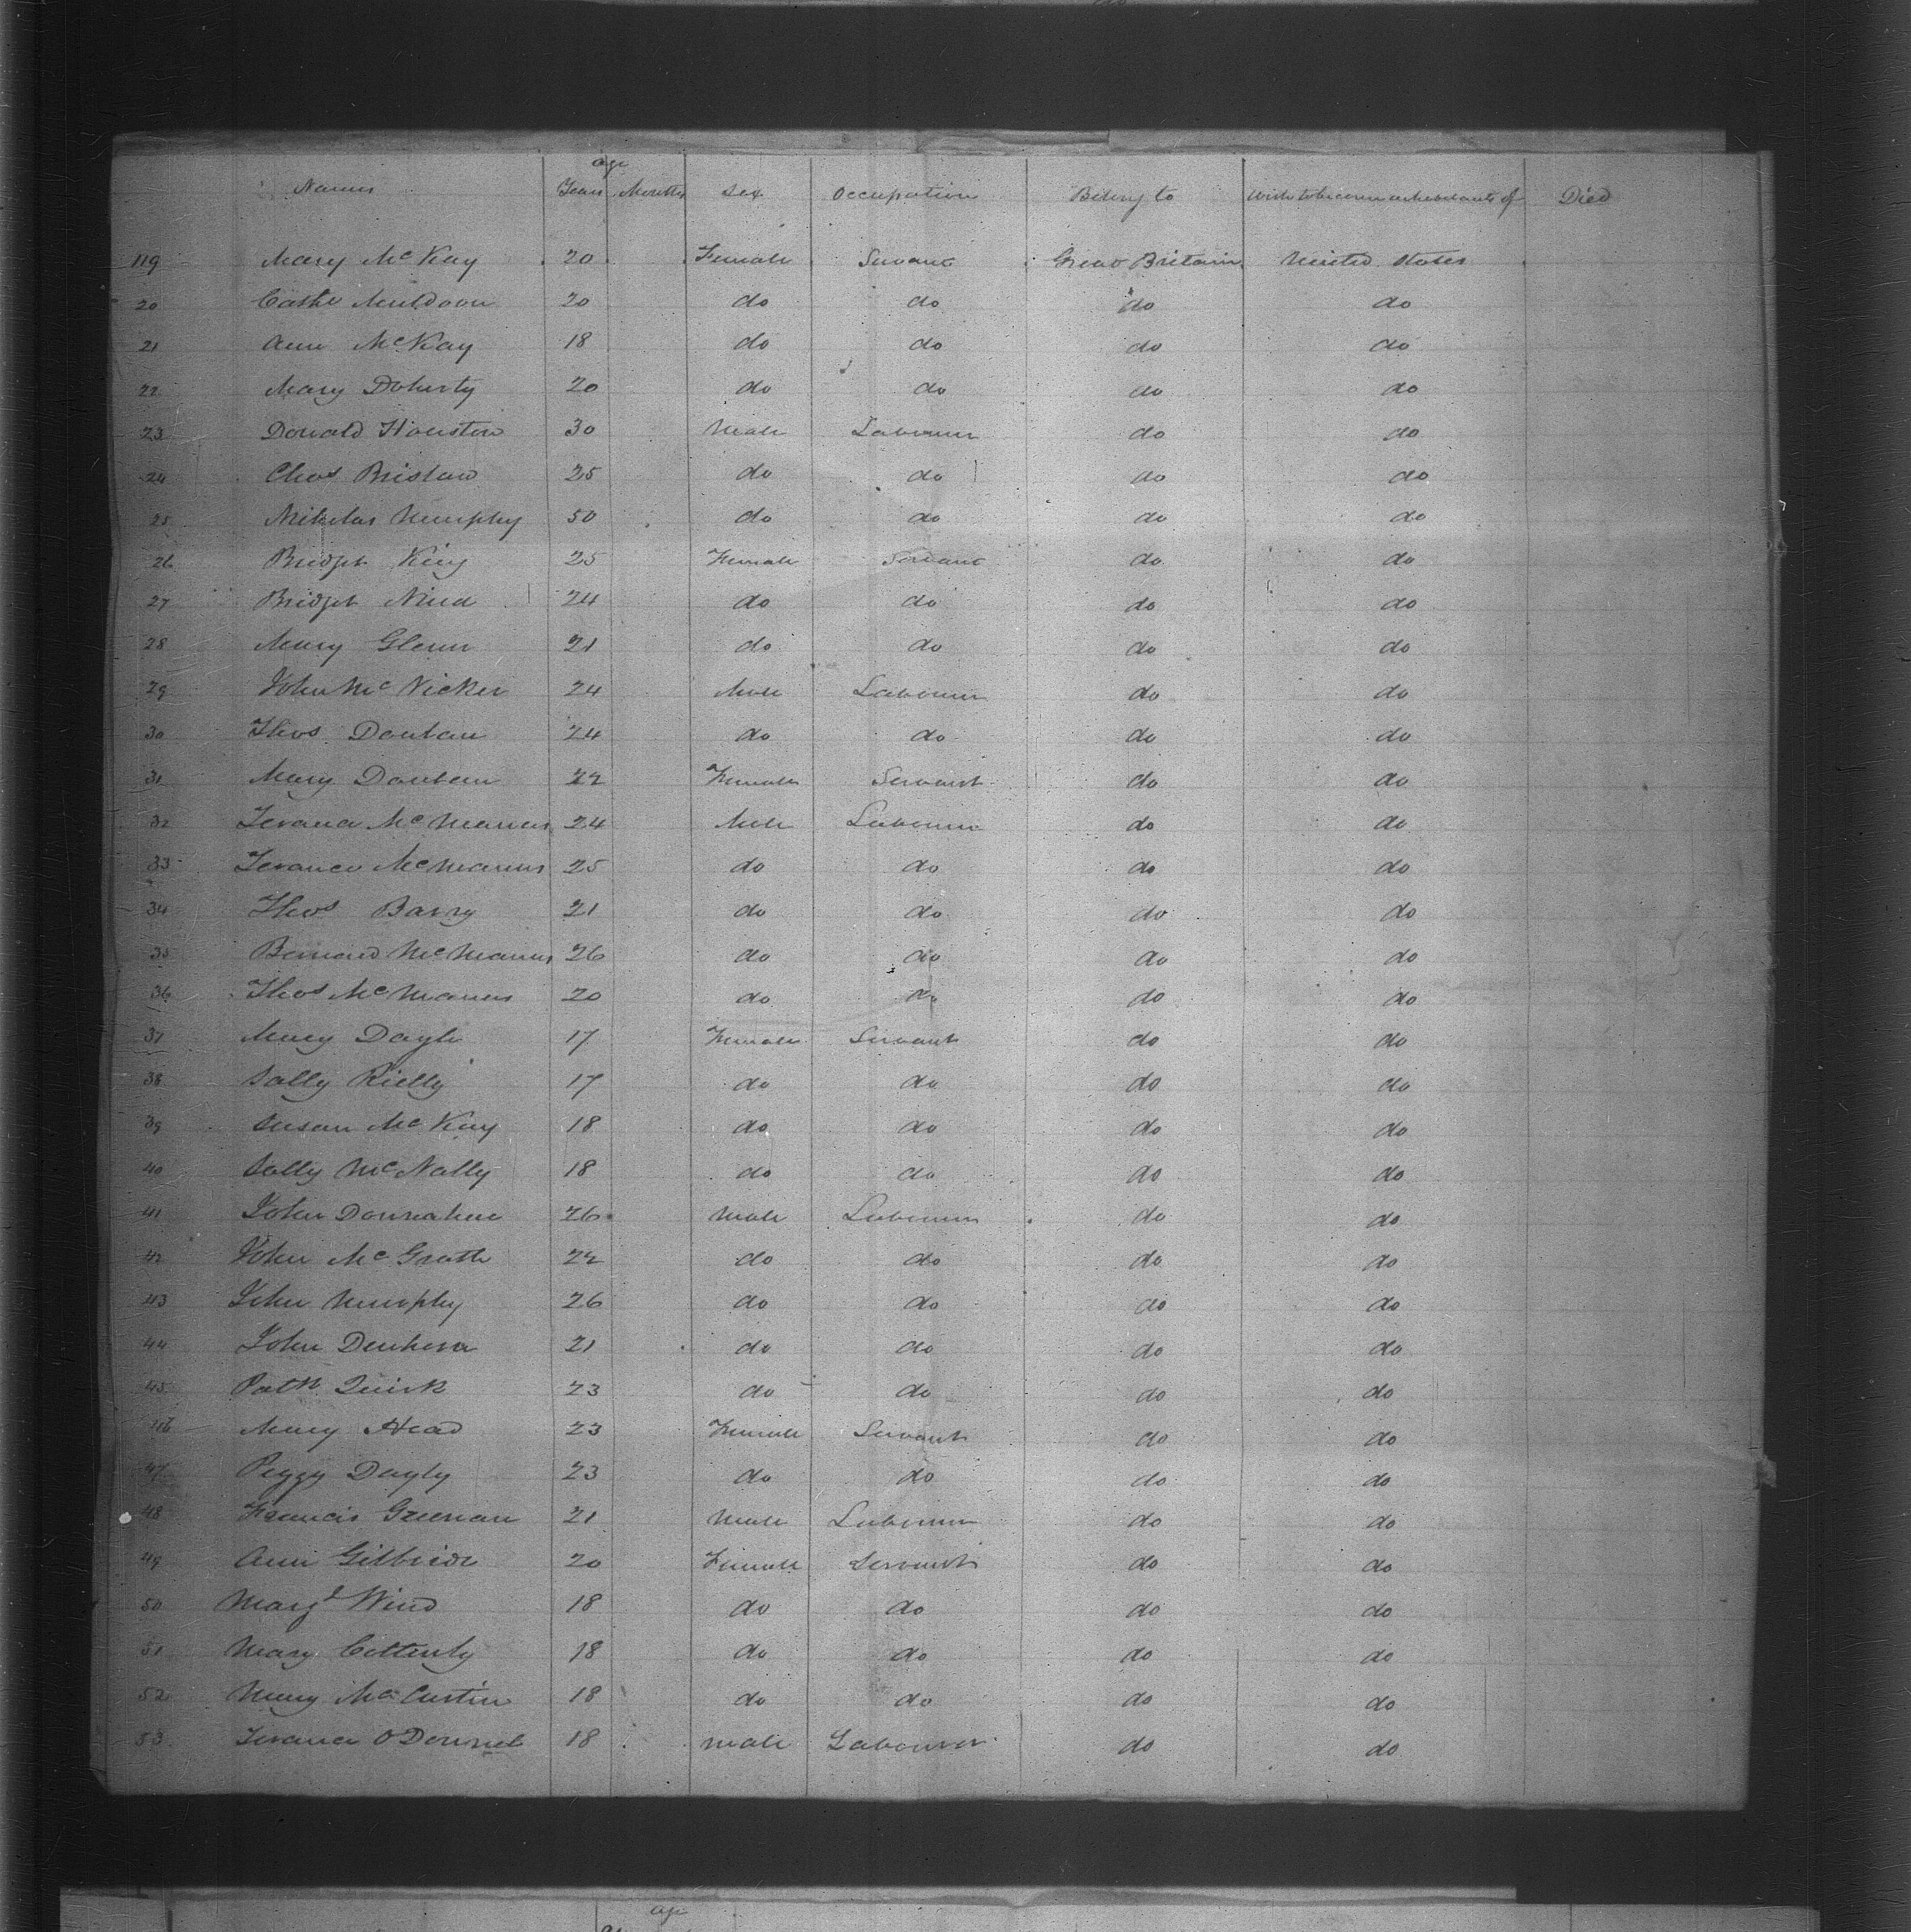 age
Names Years Months Sex Occupation Belong to Wish to become inhabitants of Died
119 Mary McKay 20 Female Servant Great Britain United States
20 Cathe Muldoon 20 do do do do
21 Ann McKay 18 do do do do
22 Mary Doherty 20 do do do do
23 Donald Houston 30 Male Labourer do do
24 Chas Bristow 25 do do do do
25 Nikolas Murphy 50 do do do do
26 Bridget King 25 Female Servant do do
27 Bridget 24 do do do do
28 Mary Glenn 21 do do do do
29 John McVicker 24 Male Labourer do do
30 Thos Doulan 24 do do do do
31 Mary Doulan 22 Female Servant do do
32 Terance McManus 24 Male Labourer do do
33 Terance McManus 25 do do do do
34 Thos Barry 21 do do do do
35 Bernard McManus 26 do do do do
36 Thos McManus 20 do do do do
37 Mary Doyle 17 Female Servant do do
38 Sally Rielly 17 do do do do
39 Susan McKay 18 do do do do
40 Sally McNally 18 do do do do
41 John Donnahue 26 Male Labourer do do
42 John McGrath 22 do do do do
43 John Murphy 26 do do do do
44 John 21 do do do do
45 Patk Quirk 23 do do do do
46 Mary Head 23 Female Servant do do
47 Peggy Dayly 23 do do do do
48 Francis Greenan 21 Male Labourer do do
49 Ann Gilbride 20 Female Servant do do
50 Margt Wind 18 do do do do
51 Mary 18 do do do do
52 Mary McCustin 18 do do do do
53 Terance O'Donnel 18 male Labourer do do
age